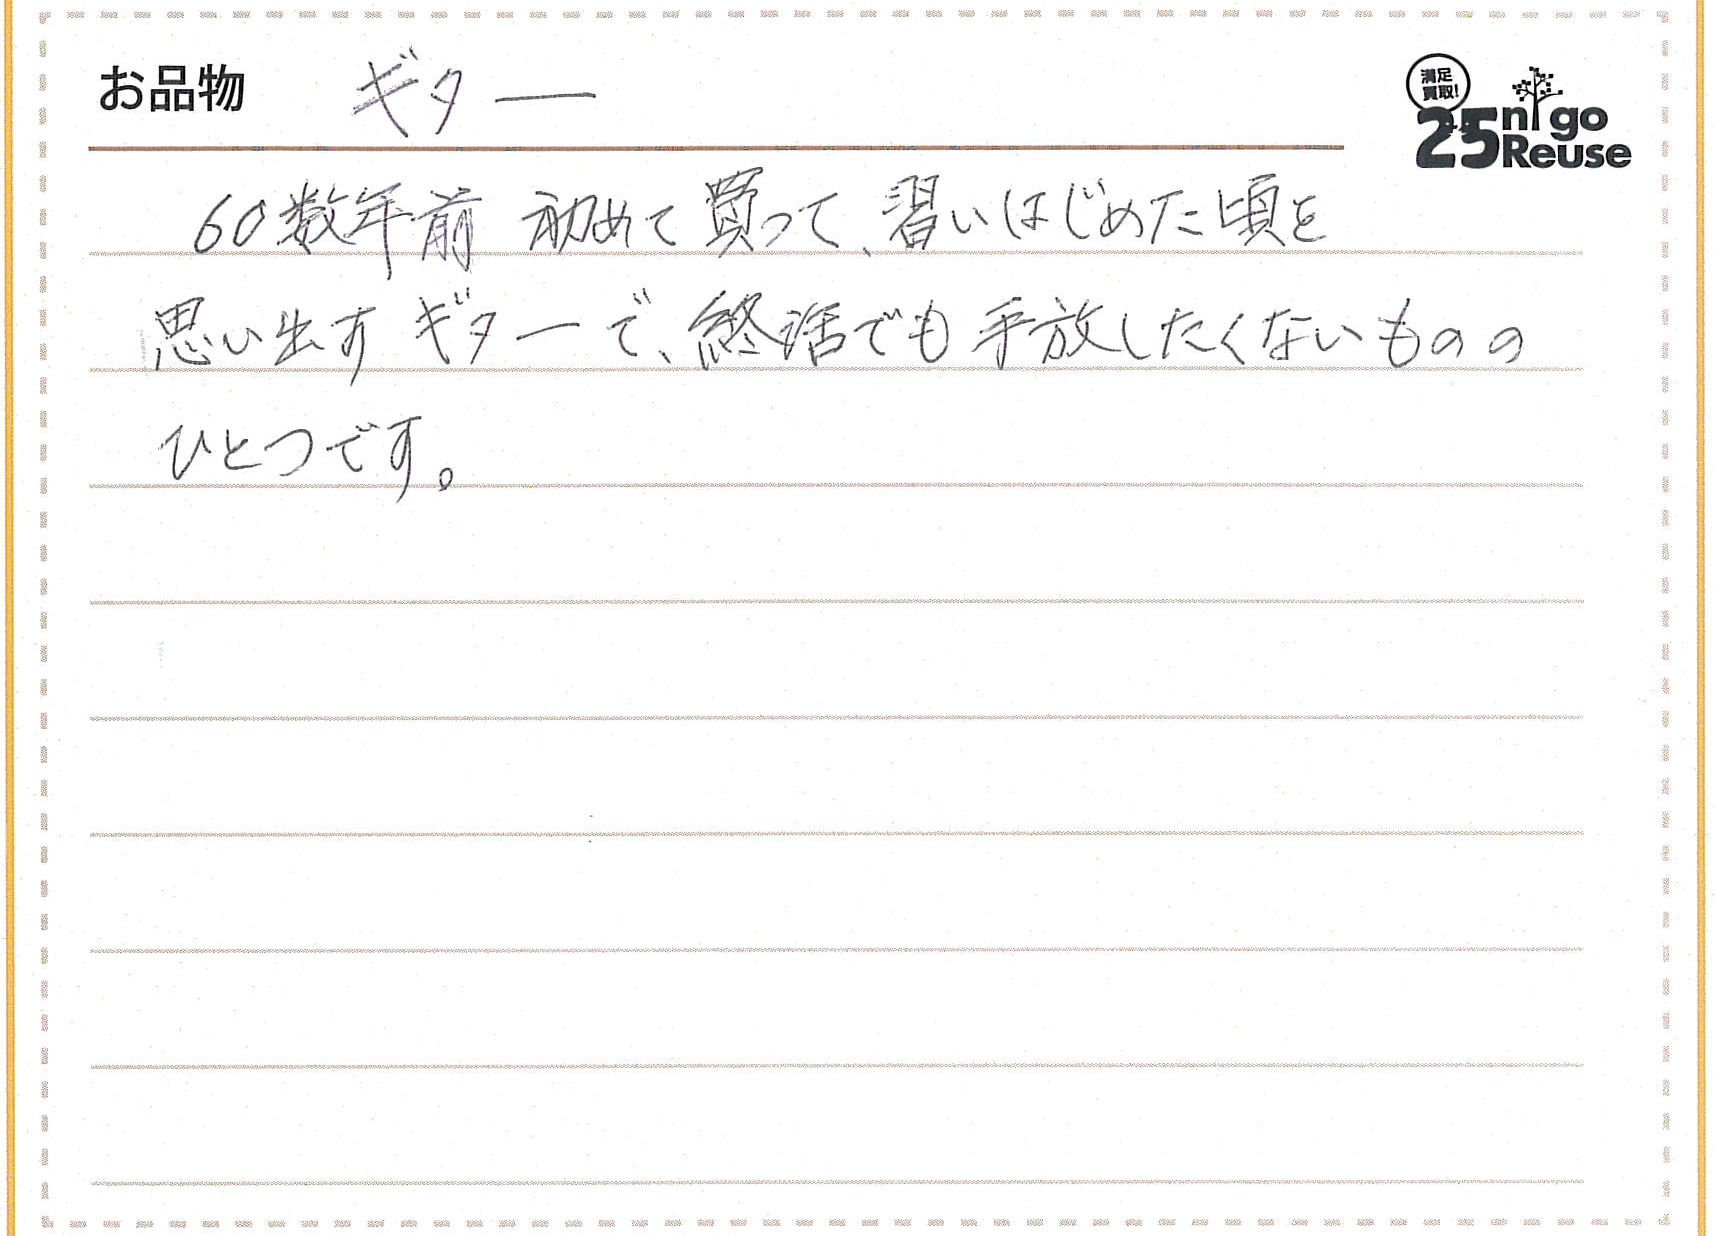 お品物 ギター
満足
買取!
25 nigo
Reuse
60数年前 初めて買って、習いはじめた頃を
思い出すギターで、終活でも手放したくないものの
ひとつです。